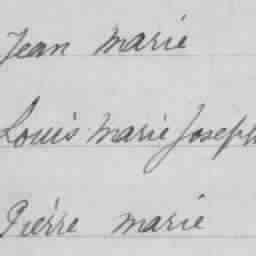 Jean marie
Louis marie Joseph
Pierre marie